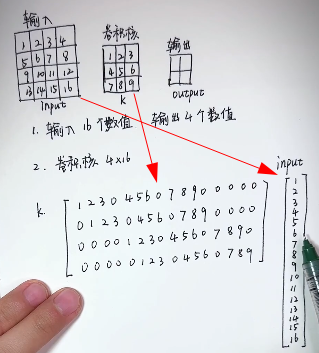 输入
卷积核
输出
1 2 3 4
5 6 7 8
9 10 11 12
13 14 15 16
input
1 2 3
4 5 6
7 8 9
k
output
1. 输入 16个数值 输出 4个数值
2. 卷积核 4×16
input
k.
1 2 3 0 4 5 6 0 7 8 9 0 0 0 0 0
0 1 2 3 0 4 5 6 0 7 8 9 0 0 0 0
0 0 0 0 1 2 3 0 4 5 6 0 7 8 9 0
0 0 0 0 0 1 2 3 0 4 5 6 0 7 8 9
1
2
3
4
5
6
7
8
9
10
11
12
13
14
15
16